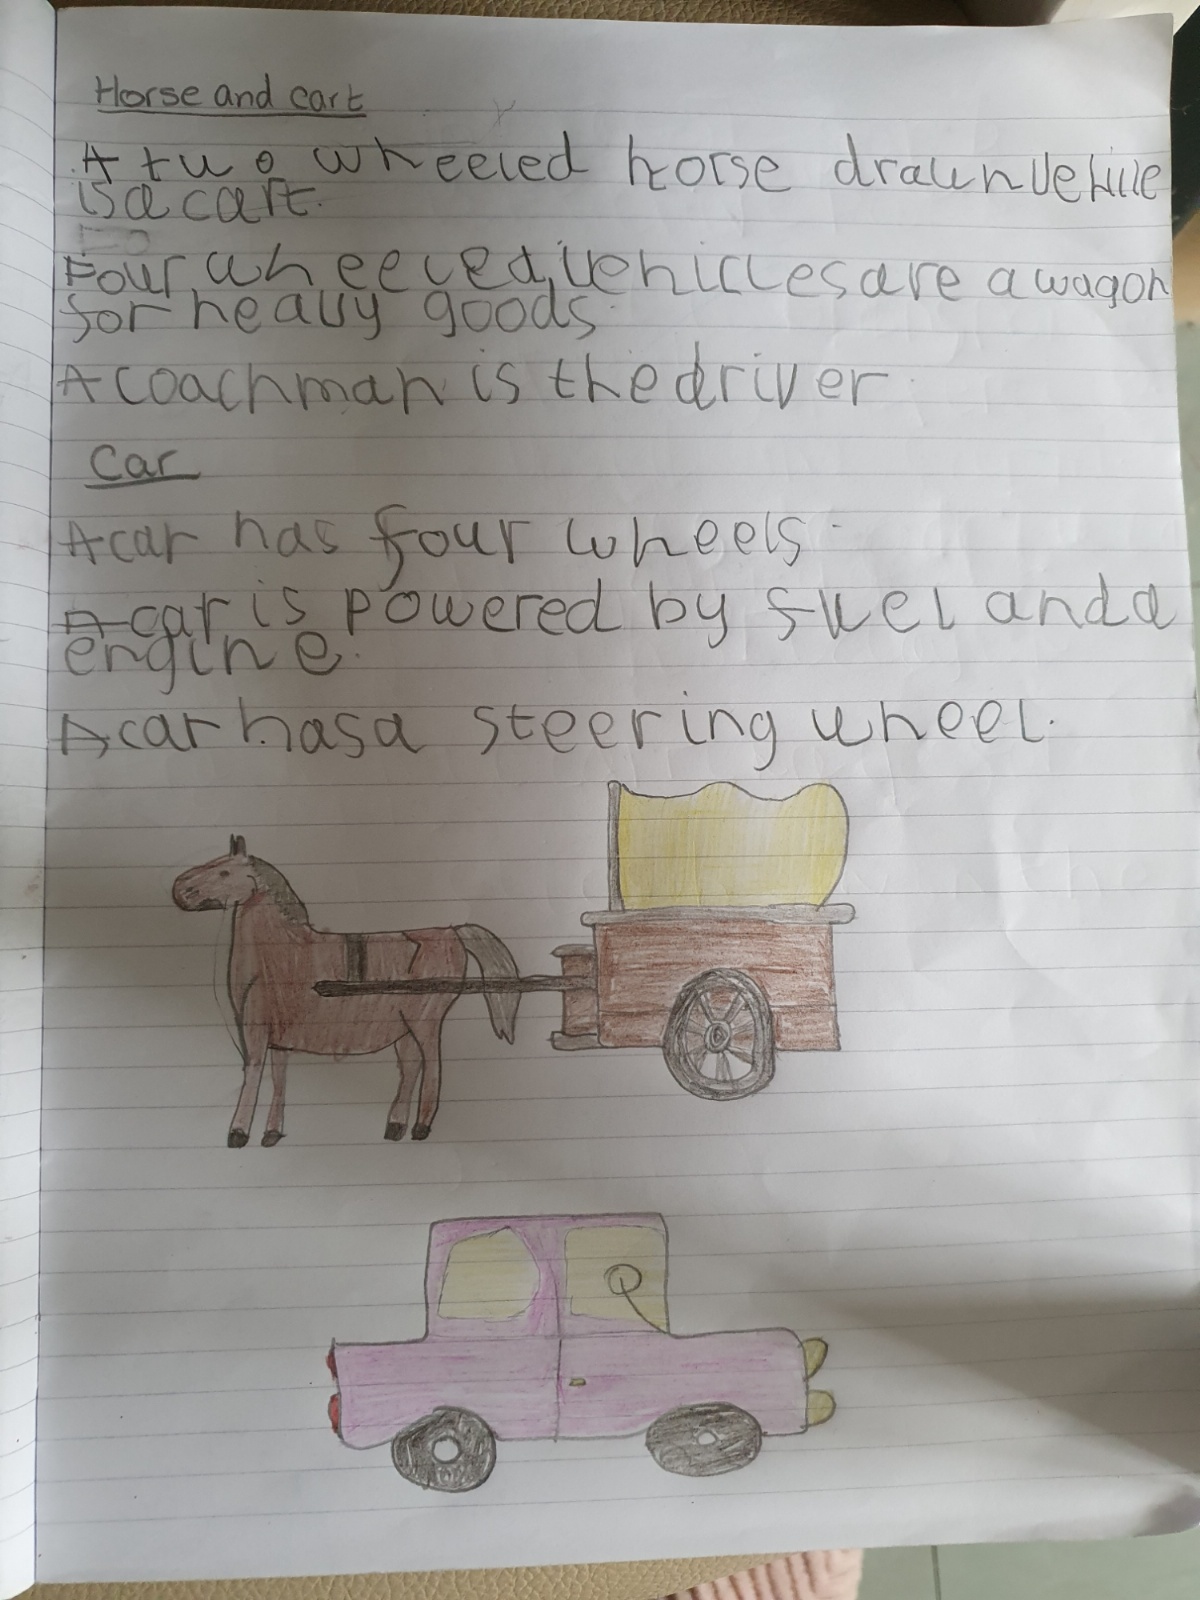 Horse and cart
A two wheeled horse drawn vehicle
is a cart.
Four wheeled, vehicles are a wagon
for heavy goods.
A coachman is the driver.
Car
A car has four wheels.
A car is powered by fuel and a
engine.
A car has a steering wheel.